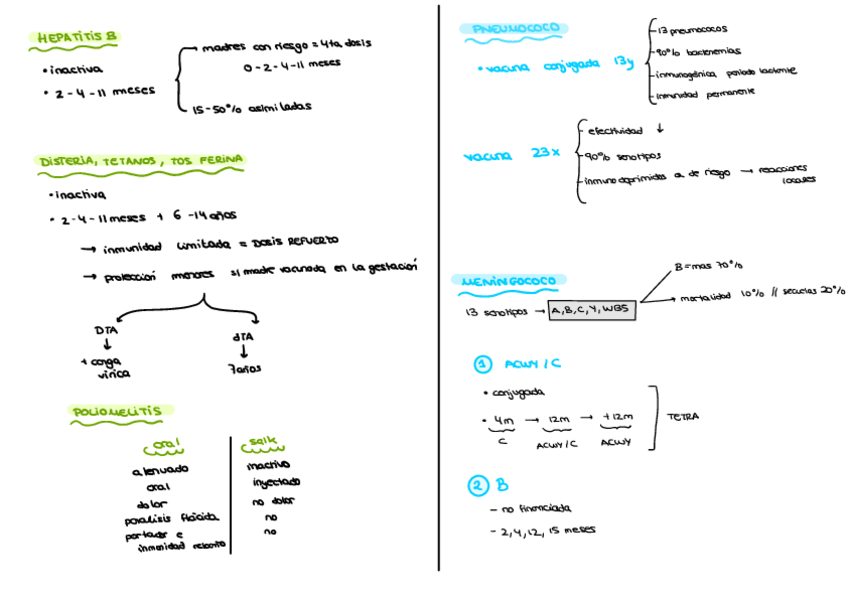 HEPATITIS B
• inactiva
• 2-4-11 meses
madres con riesgo = 4ta dosis
0-2-4-11 meses
15-50% asimiladas
DISTERIA, TETANOS, TOS FERINA
• inactiva
• 2-4-11 meses + 6-14 años
→ inmunidad limitada = DOSIS REFUERTO
→ protección menores si madre vacunada en la gestación
DTA
↓
+ carga
vírica
dTA
↓
7años
POLIOMELITIS
oral
atenuado
oral
dolor
paralisis flácida
portador e
inmunidad rebaño
salk
inactivo
inyectado
no dolor
no
no
PNEUMOCOCO
• vacuna conjugada 13y
13 pneumococos
90% bacteriemias
inmunogénica periodo lactante
inmunidad permanente
vacuna 23x
efectividad ↓
90% serotipos
inmunodeprimidos a. de riesgo → reacciones
locales
MENINGOCOCO
13 serotipos → A, B, C, Y, W135
B = mas 70%
mortalidad 10% // secuelas 20%
① ACWY / C
• conjugada
• 4m → 12m → +12m
C ACWY/C ACWY
TETRA
② B
- no financiada
- 2, 4, 12, 15 meses